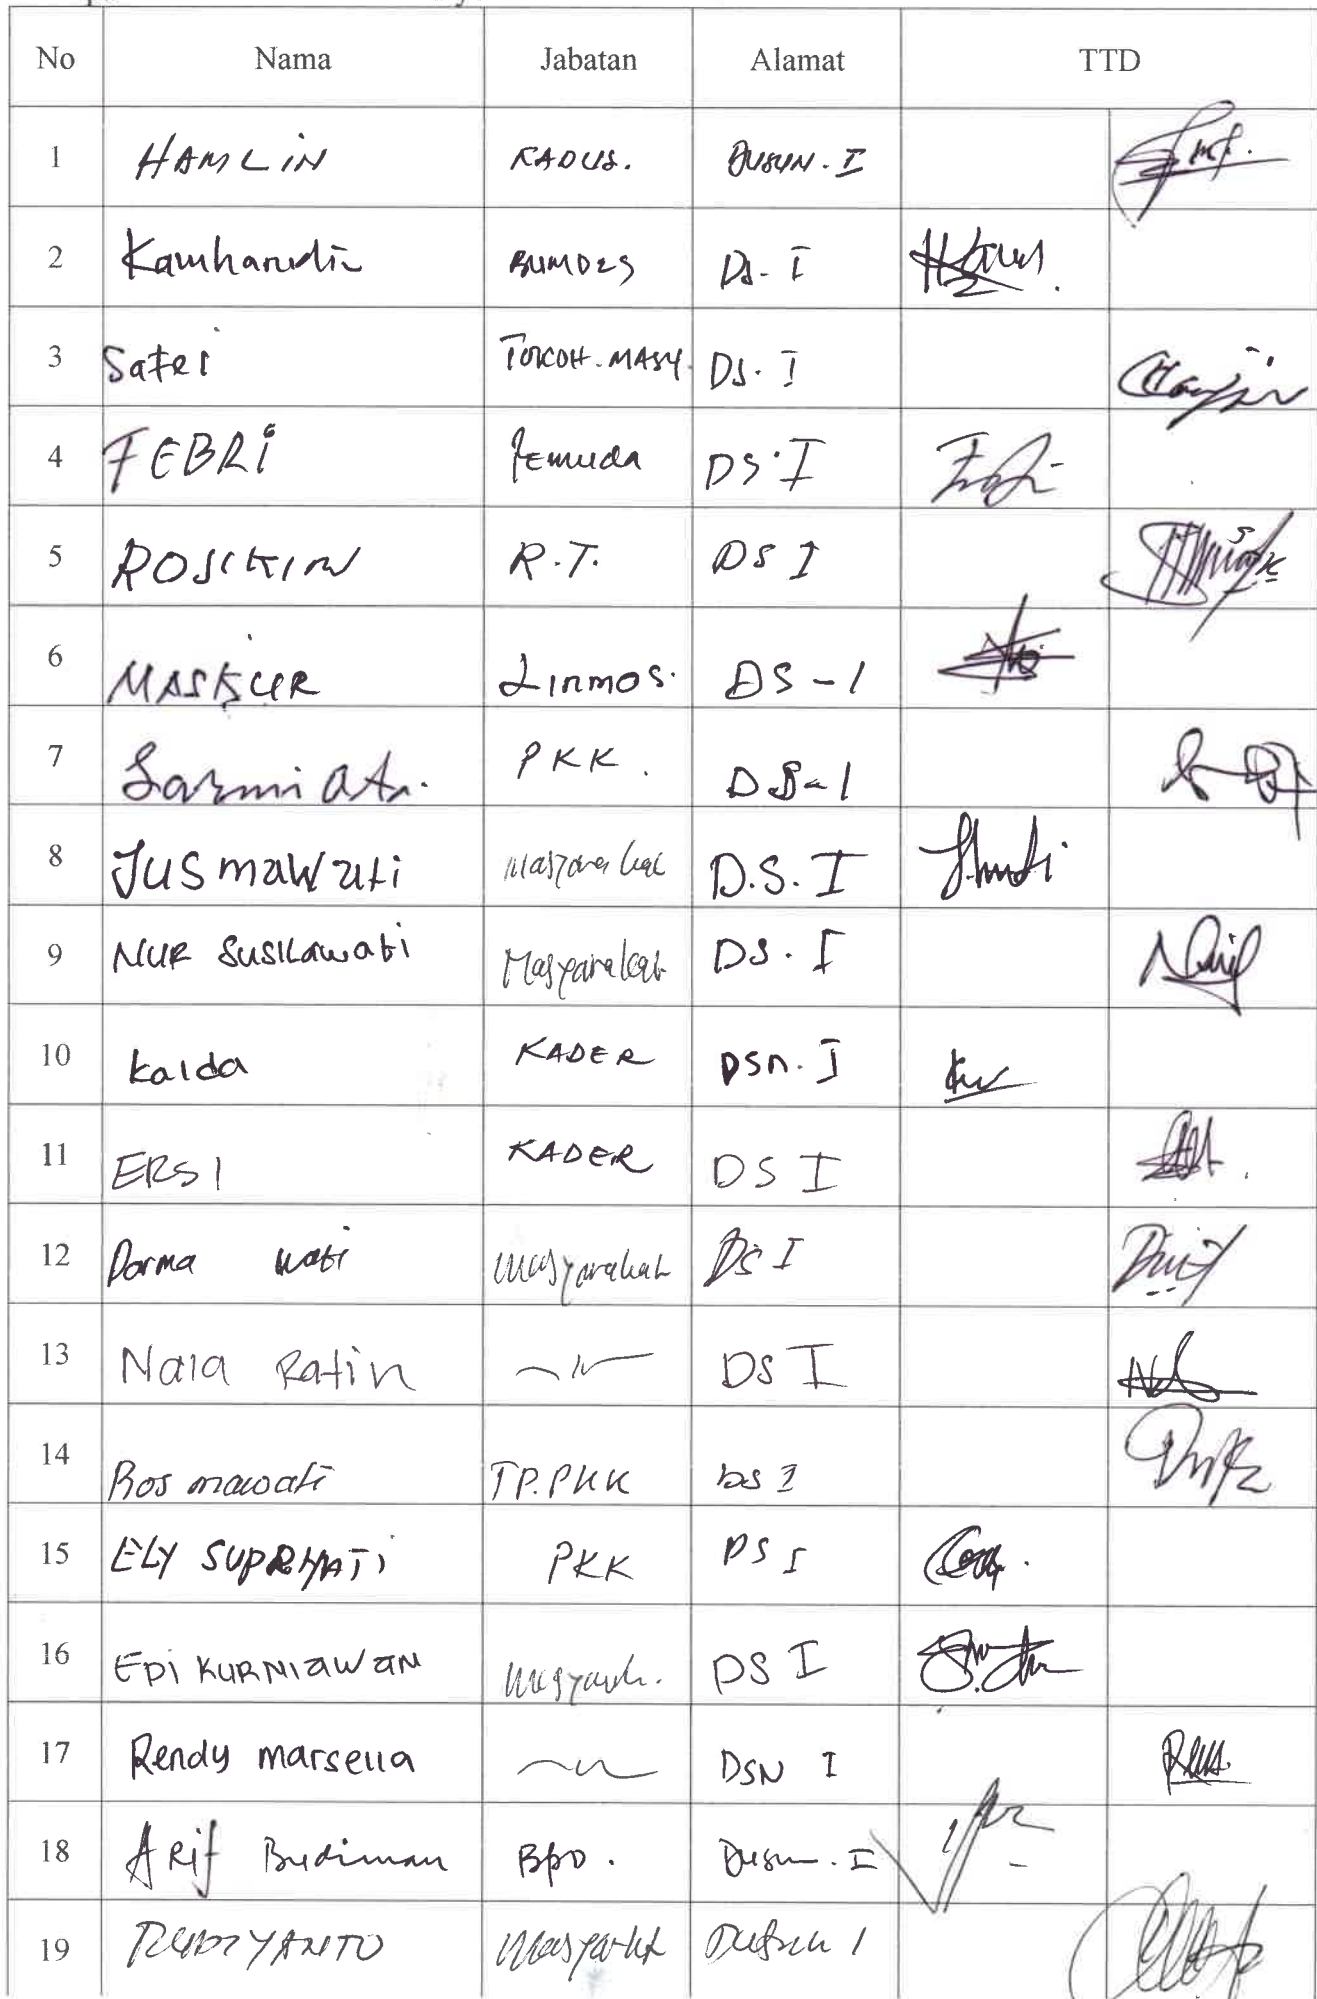 No Nama Jabatan Alamat TTD
1 HAMLIN KADUS. DUSUN. I
2 Kamharudin BUMDES Ds. I
3 Safei TOKOH. MASY. DS. I
4 FEBRI Pemuda DS. I
5 ROSIKIN R.T. DS I
6 MASKUR Linmos. DS - 1
7 PKK. DS-1
8 JUSmaWati Masyarakat D.S. I
9 NUR SUSILAwati Masyarakat DS. I
10 kalda KADER DSn. I
11 ERSI KADER DS I
12 Darma wati Masyarakat DS I
13 Nala Ratin DS I
14 Rosmawati TP.PKK DS I
15 ELY SUPRIYATI PKK DS I
16 EDI KURNIAWAN DS I
17 Rendy marsella DSN I
18 ARif Budiman BPD. Dusun. I
19 Dusun 1